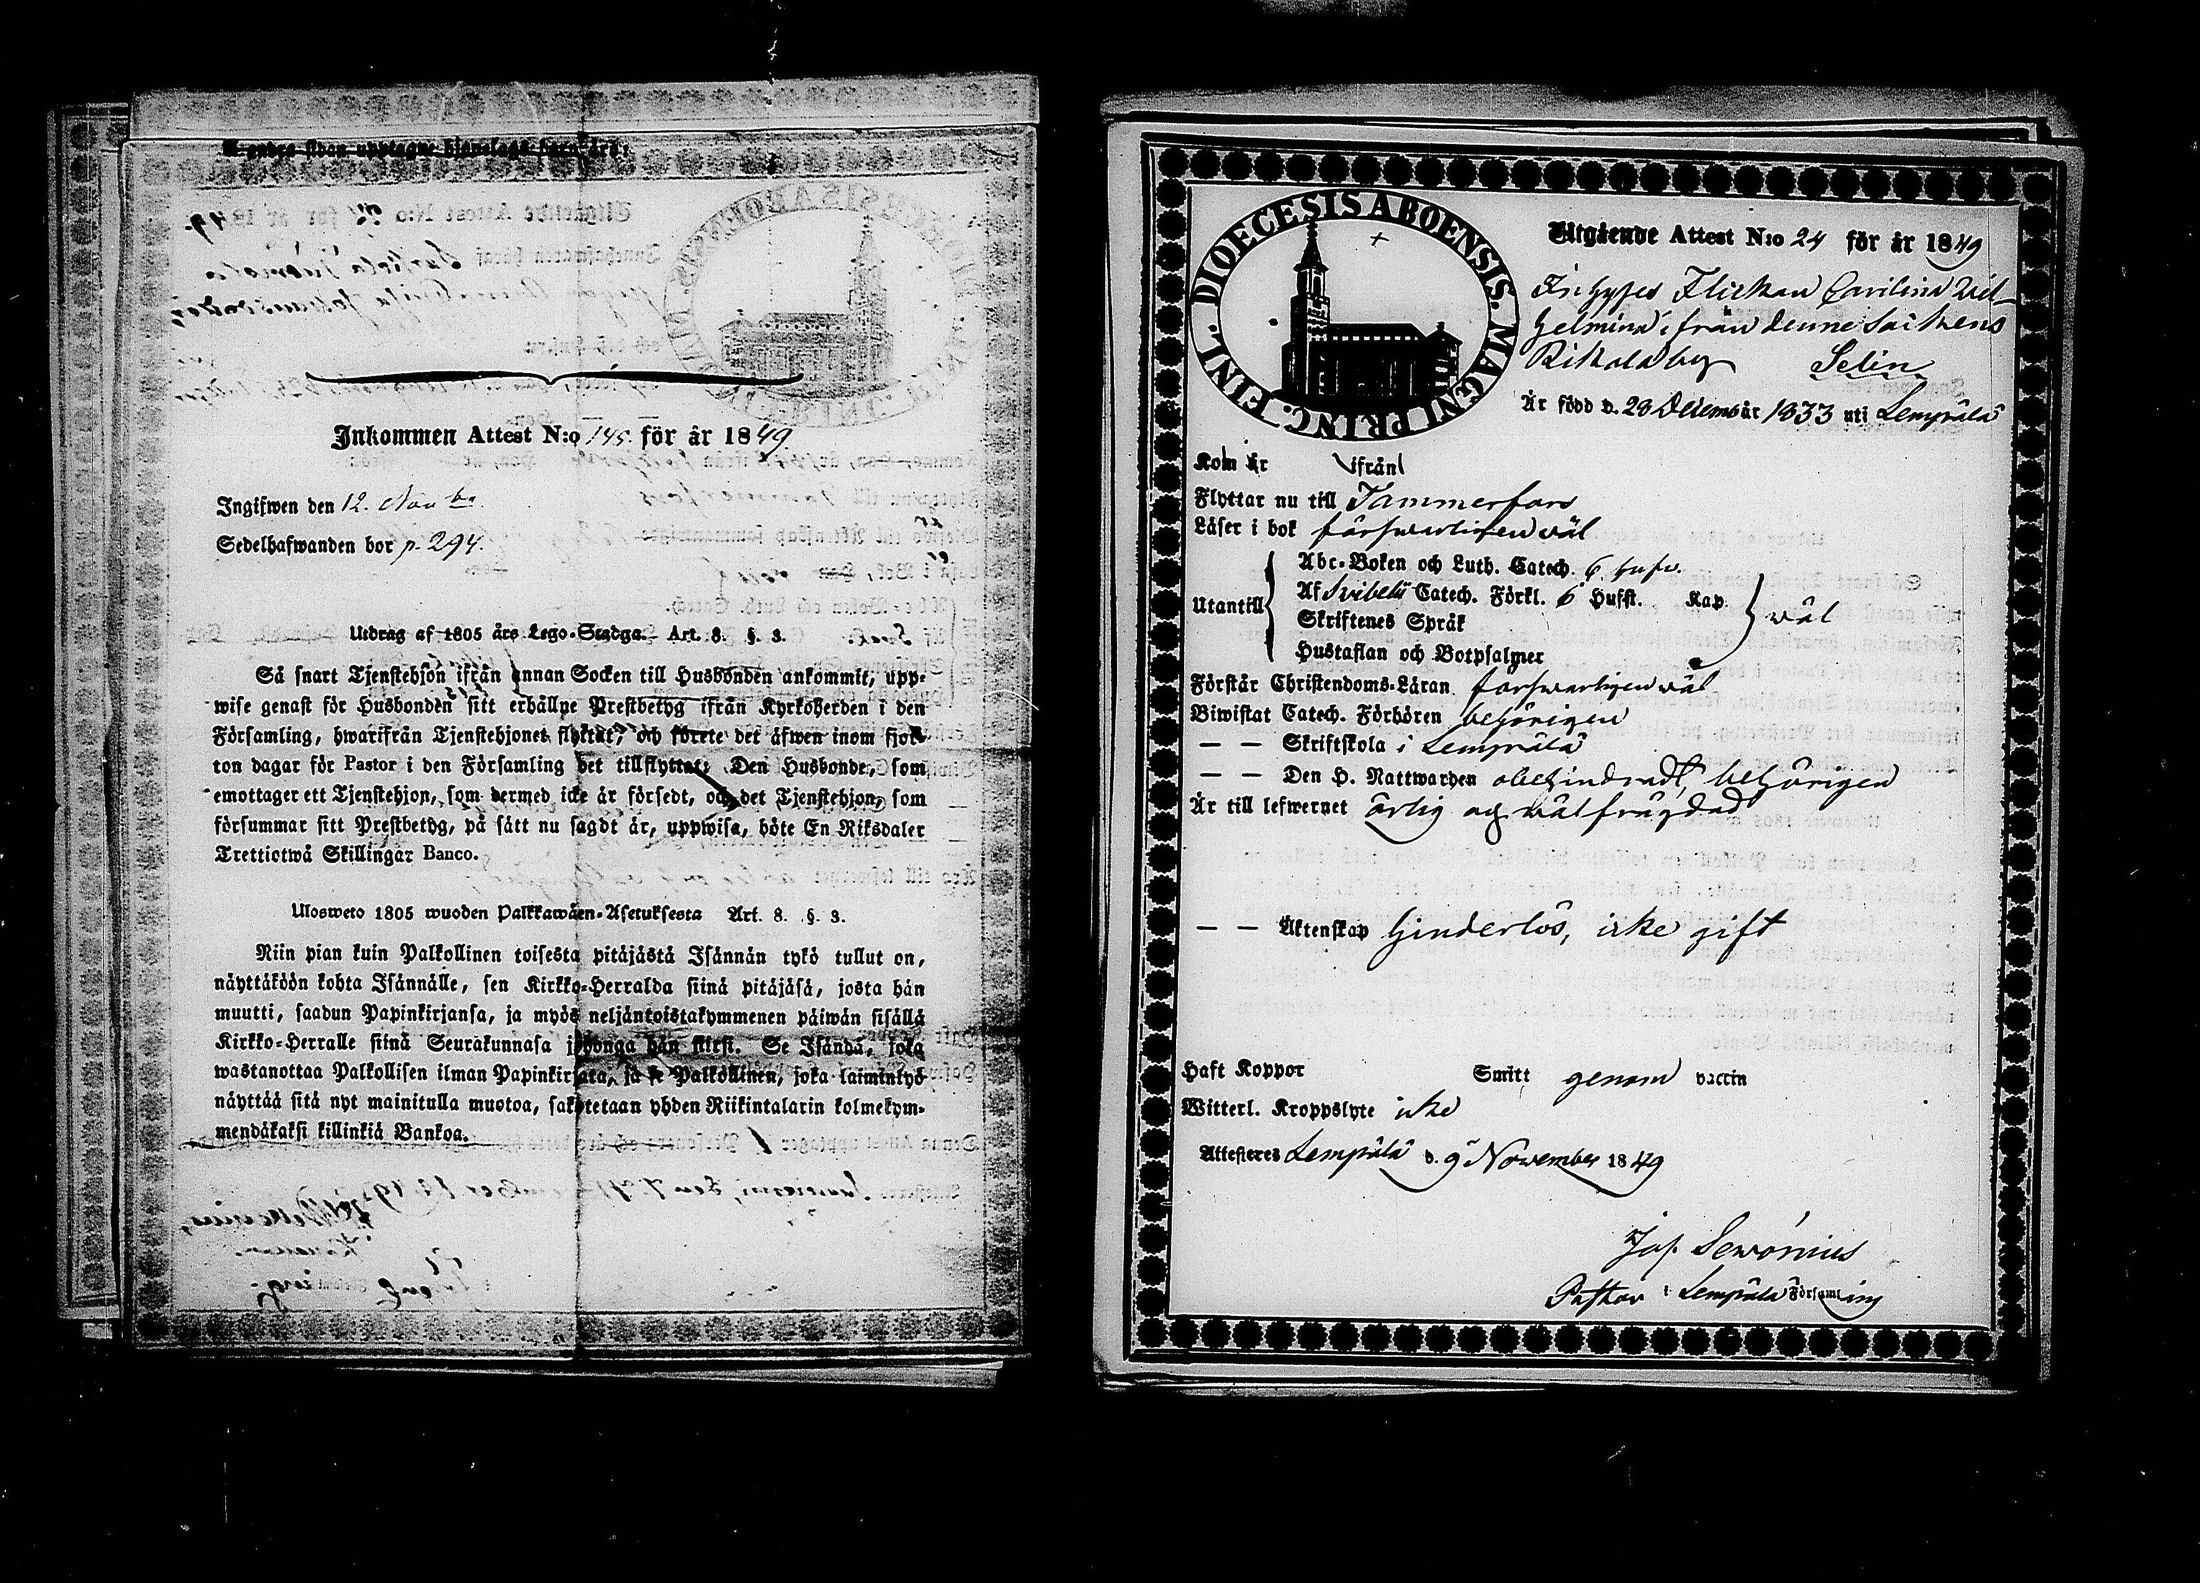 Å andra sidan upptagne hjonelags barn äro:
Inkommen Attest N:o 145. för år 1849.
Ingifwen den 12. Novbr.
Sedelhafwanden bor p. 294.
Utdrag af 1805 års Lego-Stadga. Art. 8. §. 3.
Så snart Tjenstehjon ifrån annan Socken till Husbonden ankommit, upp-
wise genast för Husbonden sitt erhållne Prestbetyg ifrån Kyrkoherden i den
Församling, hwarifrån Tjenstehjonet flyttat, och förete det äfwen inom fjor-
ton dagar för Pastor i den Församling det tillflyttat: Den Husbonde, som
emottager ett Tjenstehjon, som dermed icke är försedt, och det Tjenstehjon, som
försummar sitt Prestbetyg, på sätt nu sagdt är, uppwisa, böte En Riksdaler
Trettiotwå Skillingar Banco.
Ulosweto 1805 wuoden Palkkawäen-Asetuksesta Art. 8. §. 3.
Niin pian kuin Palkollinen toisesta pitäjästä Isännän tykö tullut on,
näyttäköön kohta Isännälle, sen Kirkko-Herralda siinä pitäjäsä, josta hän
muutti, saadun Papinkirjansa, ja myös neljäntoistakymmenen päiwän sisällä
Kirkko-Herralle siinä Seurakunnasa johonga hän siirsi. Se Isändä, joka
wastanottaa Palkollisen ilman Papinkirjata, ja se Palkollinen, joka laiminlyö
näyttää sitä nyt mainitulla muotoa, sakotetaan yhden Riikintalarin kolmekym-
mendäkaksi killinkiä Bankoa.
FINL. DIOECESIS ABOENSIS. MAGNI PRINC.
Utgående Attest N:o 24 för år 1849
Inhyses Flickan Carolina Wil-
helmina ifrån denne Sockens
Rikalaby Selin
Är född d. 23 Decembr år 1833 uti Lempälä
Kom år ifrån
Flyttar nu till Tammerfors
Läser i bok försvarligen väl
Utantill
Abc-Boken och Luth. Catech. 6. hufv.
Af Svibelii Catech. Förkl. 6 Hufst. Kap.
Skriftenes Språk
Hustaflan och Botpsalmer
väl
Förstår Christendoms-Läran försvarligen väl
Biwistat Catech. Förhören behörigen
— — Skriftskola i Lempälä
— — Den H. Nattwarden obehindradt, behörigen
Är till lefwernet ärlig och välfrägdad
— — Äktenskap hinderlös, icke gift
Haft Koppor Smitt genom vaccin
Witterl. Kroppslyte icke
Attesteres Lempälä d. 9 November 1849
Jos. Sevonius
Pastor i Lempälä Församling